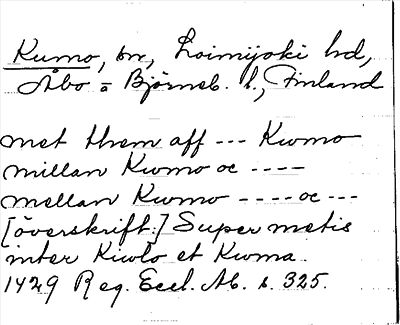 Kumo, sn, Loimijoki hd,
Åbo o Björneb. l., Finland
met them aff --- Kwmo
millan Kwmo oc ----
mellan Kwmo ---- oc ---
[överskrift:] Super metis
inter Kiwlo et Kwma.
1429 Reg. Eccl. Ab. s. 325.